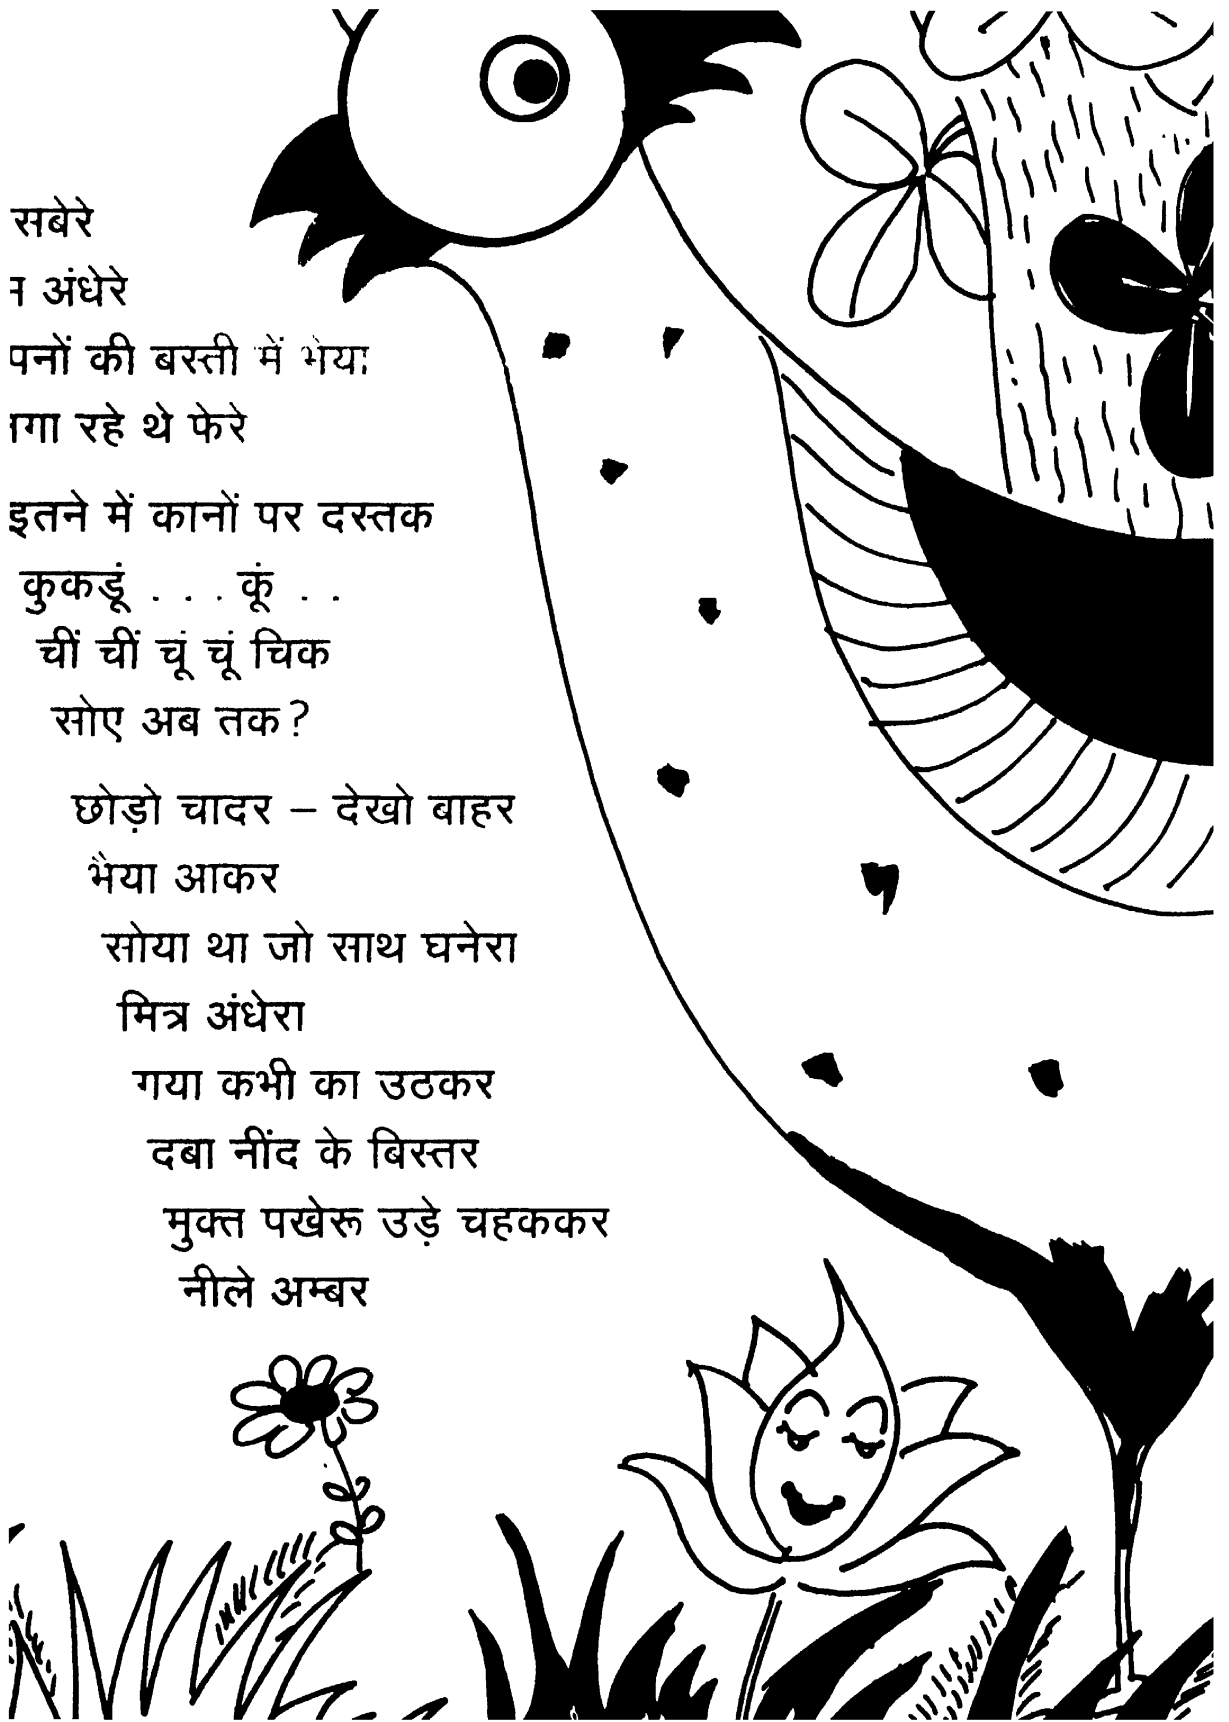 सबेरे
अंधेरे
की बस्ती में भैया
रहे थे फेरे
इतने में कानों पर दस्तक
कुकडूं . . . कूं . .
चीं चीं चूं चूं चिक
सोए अब तक?
छोड़ो चादर – देखो बाहर
भैया आकर
सोया था जो साथ घनेरा
मित्र अंधेरा
गया कभी का उठकर
दबा नींद के बिस्तर
मुक्त पखेरू उड़े चहककर
नीले अम्बर